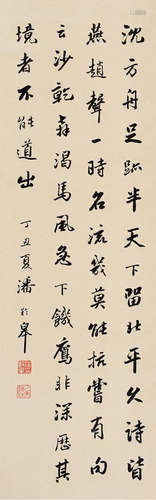 沈方舟足跡半天下留北平久詩皆
燕趙聲一時名流幾莫能抗嘗有句
云沙乾犇渴馬風急下饑鷹非深歷其
境者不能道出
丁丑夏潘於皋